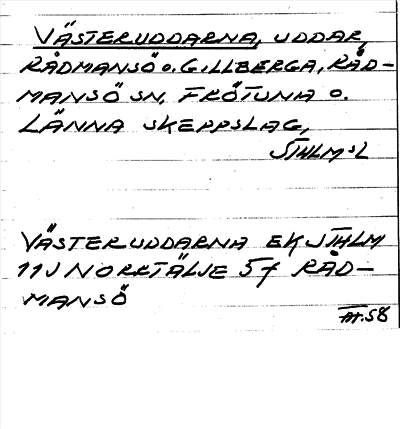 VÄSTERUDDARNA, UDDAR,
RÅDMANSÖ o. GILLBERGA, RÅD-
MANSÖ SN, FRÖTUNA o.
LÄNNA SKEPPSLAG,
STHLM SL
VÄSTERUDDARNA EK STHLM
11J NORRTÄLJE 5f RÅD-
MANSÖ